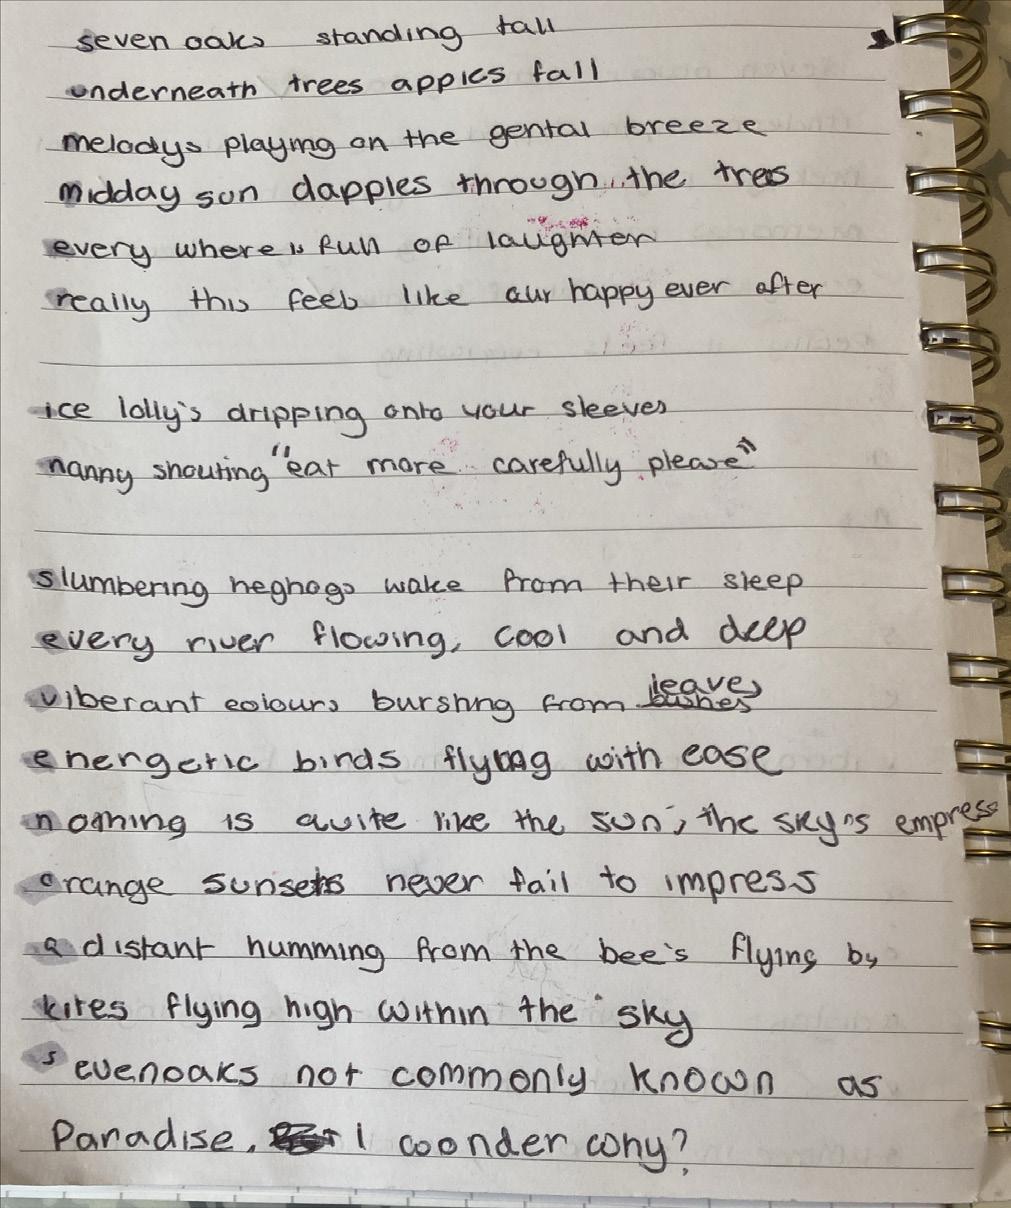 seven oaks standing tall
underneath trees apples fall
melodys playing on the gental breeze
midday sun dapples through the trees
every where is full of laughter
really this feels like our happy ever after
ice lolly's dripping onto your sleeves
nanny shouting "eat more carefully please"
slumbering heghogs wake from their sleep
every river flowing, cool and deep
viberant colours bursting from leaves
energetic birds flying with ease
nothing is quite like the sun, the sky's empress
orange sunsets never fail to impress
a distant humming from the bee's flying by
kites flying high within the sky
sevenoaks not commonly known as
Paradise. I wonder why?